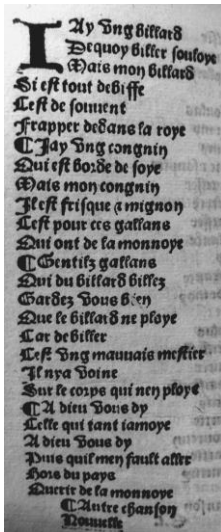 IAy vng billard
Dequoy biller souloye
Mais mon billard
Si est tout debiffe
Cest de souuent
Frapper dedans la roye
¶ Jay vng congnin
Qui est borde de soye
Mais mon congnin
Il est frisque & mignon
Cest pour ces gallans
Qui ont de la monnoye
¶ Gentilz gallans
Qui du billard billez
Gardez vous bien
Que le billard ne ploye
Car de biller
Cest vng mauuais mestier
Il nya voine
Sur le corps qui nen ploye
¶ A dieu vous dy
Celle qui tant iamoye
A dieu vous dy
Puis quil men fault aller
Hors du pays
Querir de la monnoye
¶ Autre chanson
Nouuelle